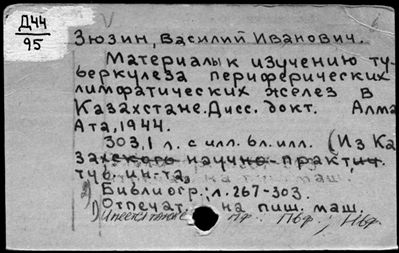 Д44
95
Зюзин, Василий Иванович.
Материалы к изучению ту-
беркулеза периферических
лимфатических желез в
Казахстане. Дисс. докт. Алма
Ата, 1944.
303,1 л. с илл. бл. илл. (Из Ка
захского научно-практич.
туб. ин-та
Библиогр.: л. 267-303.
Отпечат. на пиш. маш.